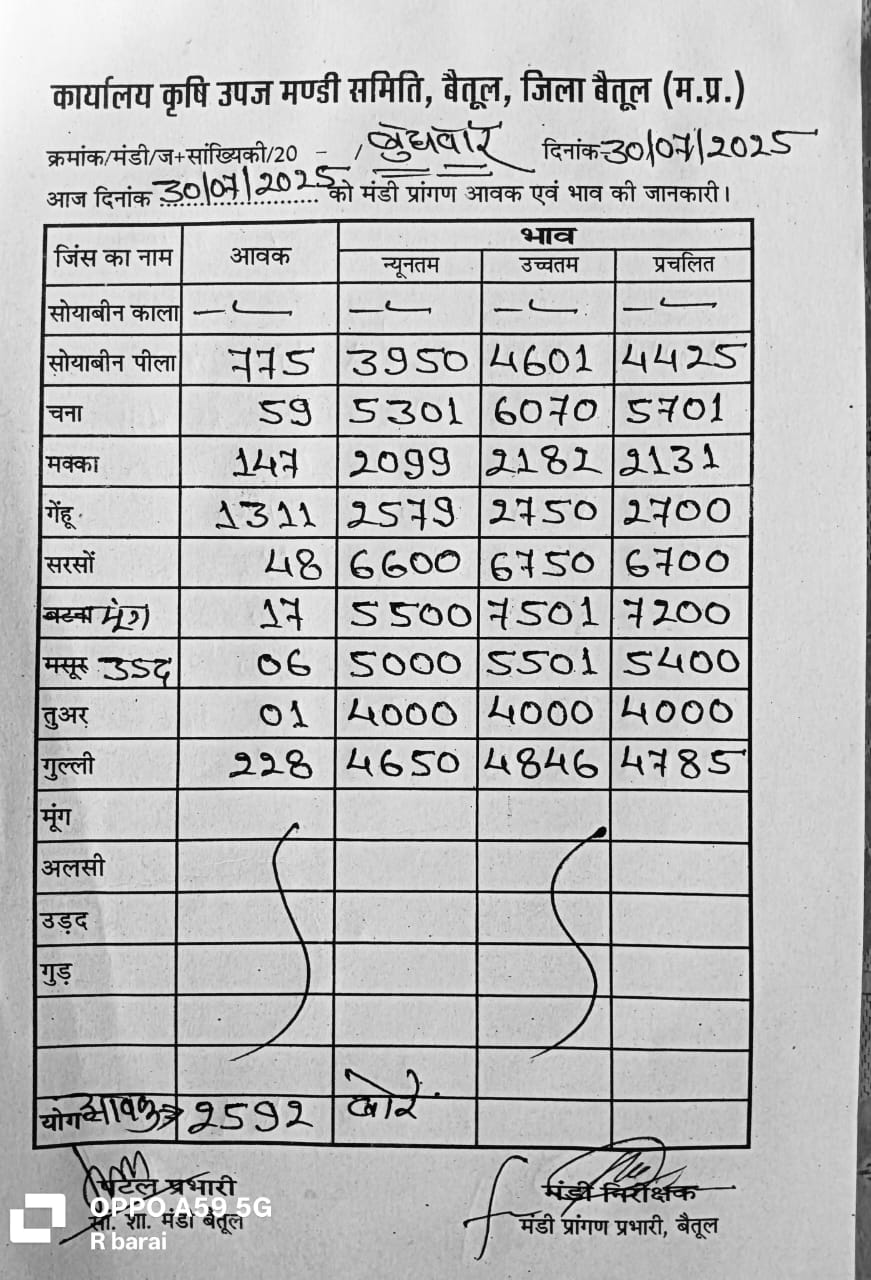 कार्यालय कृषि उपज मण्डी समिति, बैतूल, जिला बैतूल (म.प्र.)
क्रमांक/मंडी/ज+सांख्यिकी/20 - / बुधवार दिनांक 30/07/2025
आज दिनांक 30/07/2025 को मंडी प्रांगण आवक एवं भाव की जानकारी।
जिंस का नाम आवक भाव
न्यूनतम उच्चतम प्रचलित
सोयाबीन काला — — — —
सोयाबीन पीला 775 3950 4601 4425
चना 59 5301 6070 5701
मक्का 147 2099 2182 2131
गेंहू 1311 2579 2750 2700
सरसों 48 6600 6750 6700
बटना मूंग 17 5500 7501 7200
मसूर उड़द 06 5000 5501 5400
तुअर 01 4000 4000 4000
गुल्ली 228 4650 4846 4785
मूंग
अलसी
उड़द
गुड़
योग आवक → 2592 बोरे
पटल प्रभारी मंडी निरीक्षक
सां. शा. मंडी बैतूल मंडी प्रांगण प्रभारी, बैतूल
OPPO A59 5G
R barai